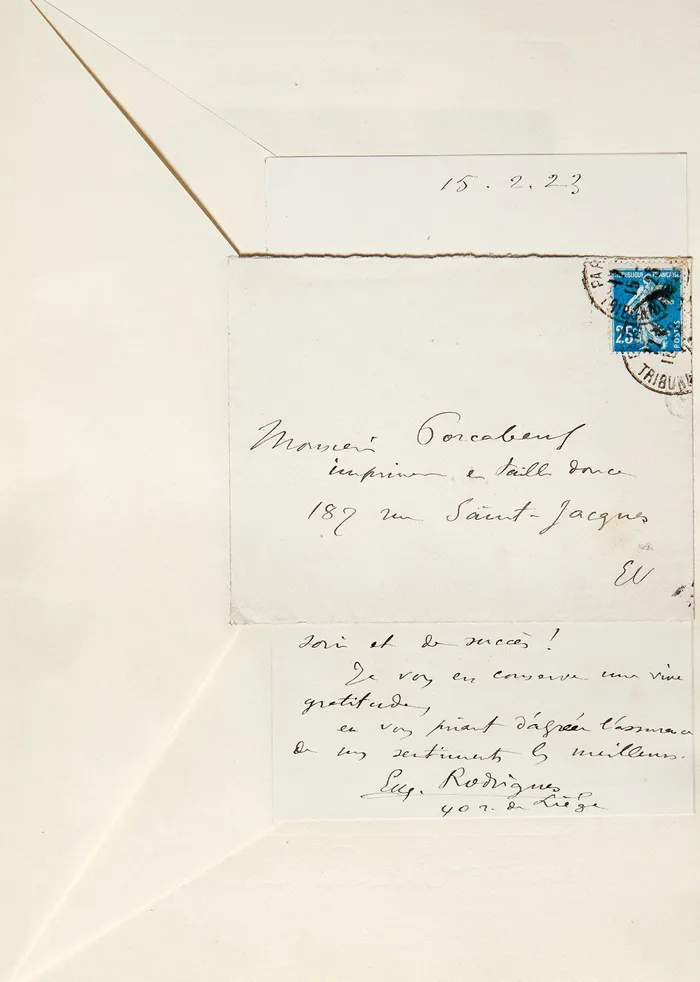 15.2.23
RÉPUBLIQUE FRANÇAISE
25c
POSTES
PAR
TRIBUNA
TRIBUNA
Monsieur Porcabeuf
imprimeur en taille douce
187 rue Saint-Jacques
EV
soin et de succès !
Je vous en conserve une vive
gratitude,
en vous priant d'agréer l'assurance
de mes sentiments les meilleurs.
Eug. Rodrigues
40 r. de Liège